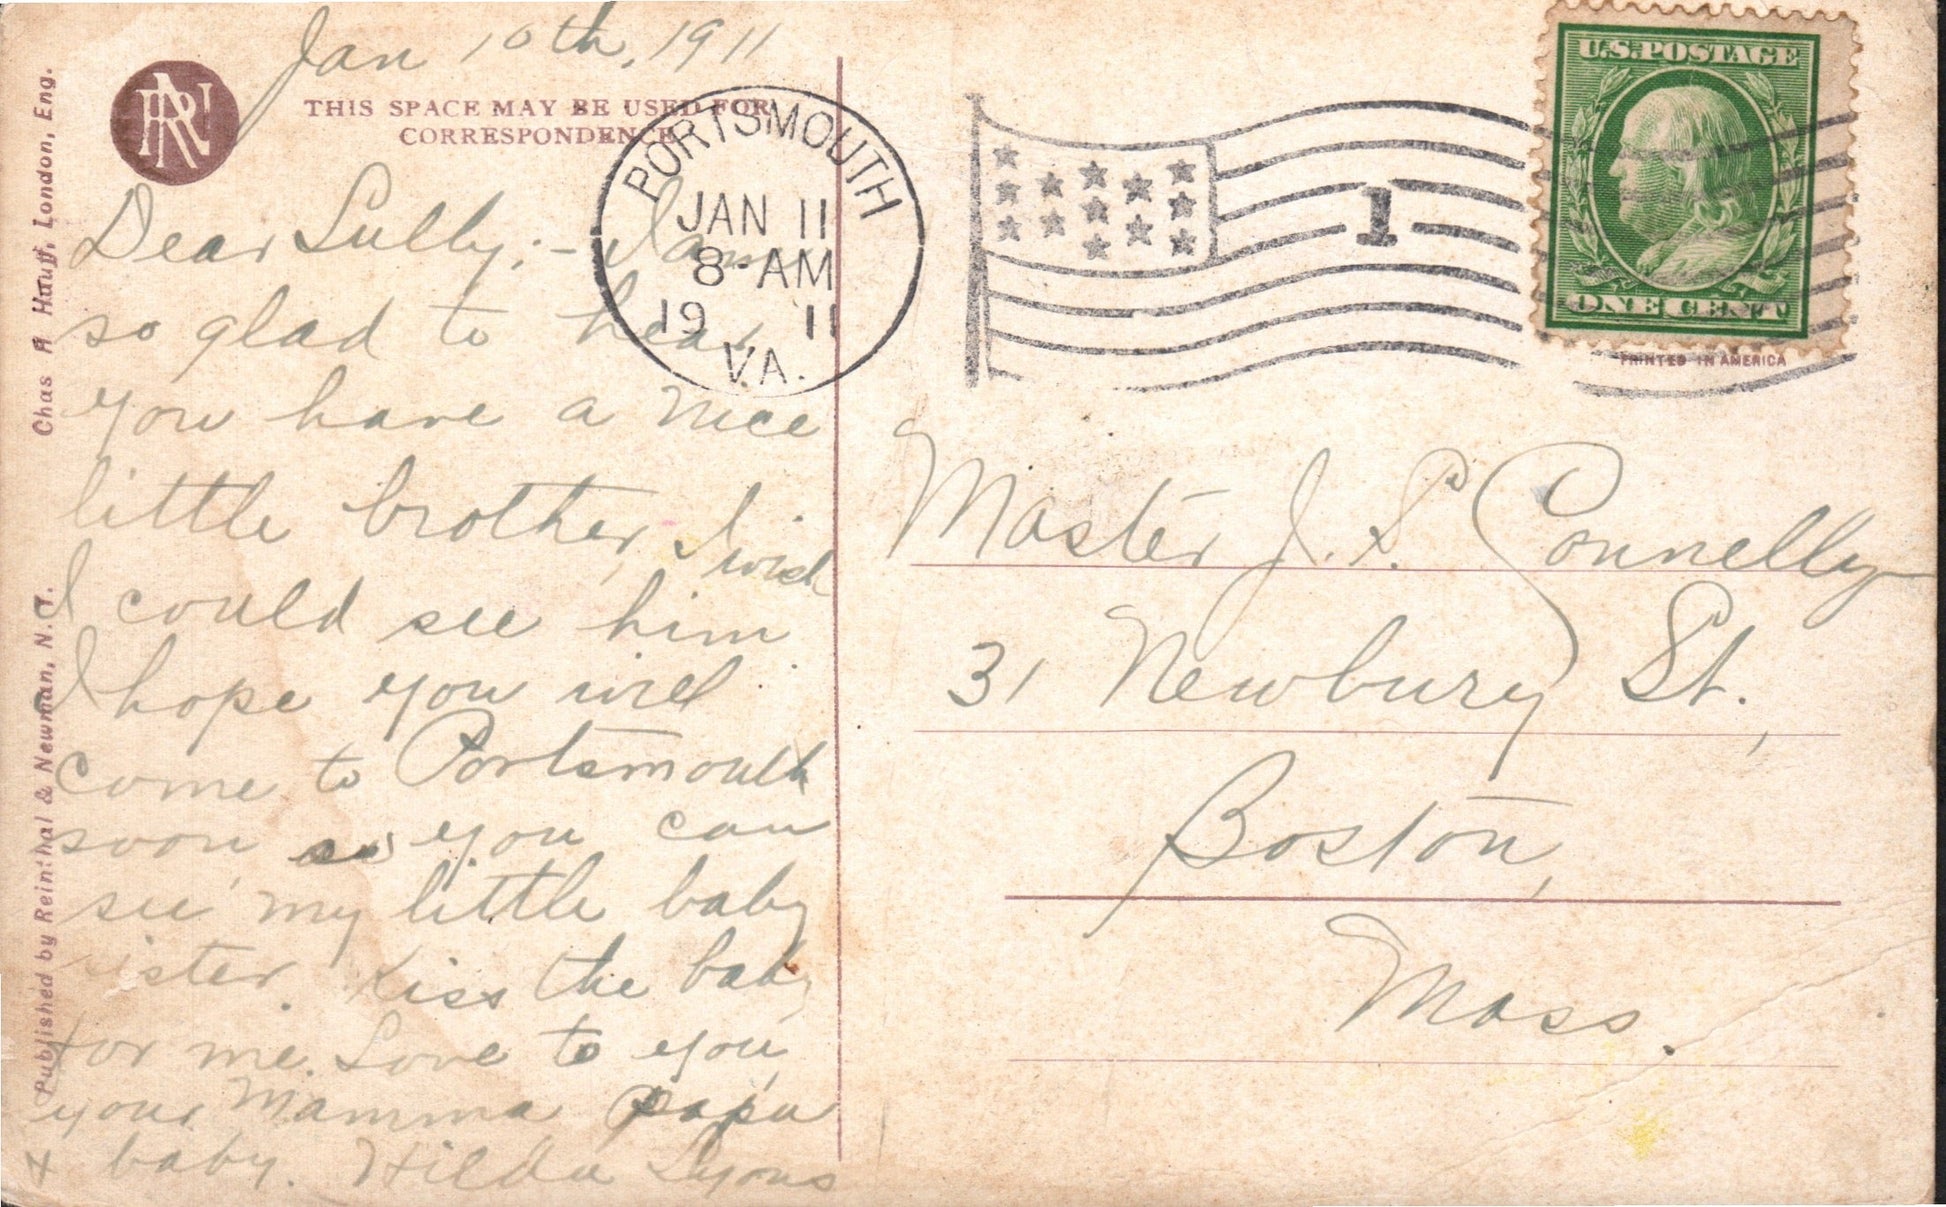 Jan 10th, 1911
THIS SPACE MAY BE USED FOR
CORRESPONDENCE
Dear Sully;- I am
so glad to hear
you have a nice
little brother, I wish
I could see him
I hope you will
come to Portsmouth
soon, so you can
see my little baby
sister. Kiss the baby
for me. Love to you,
your Mamma papa
& baby. Hilda Lyons
Chas A Huff, London, Eng.
Published by Reinthal & Newman, N.Y.
RN
PORTSMOUTH
JAN 11
8-AM
19 11
VA.
1
U.S. POSTAGE
ONE CENT
PRINTED IN AMERICA
Master J. S. Connelly
31 Newbury St.,
Boston,
Mass.